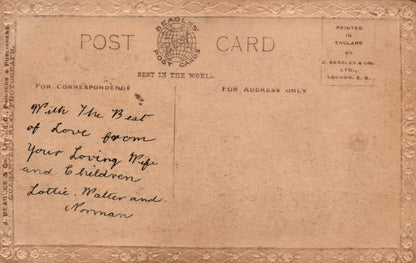 BEAGLES'
POST CARDS
POST CARD
BEST IN THE WORLD
PRINTED
IN
ENGLAND
BY
J. BEAGLES & CO.,
LTD.,
LONDON, E.C.
FOR CORRESPONDENCE
FOR ADDRESS ONLY
With The Best
of Love from
Your Loving Wife
and Children
Lottie. Walter and
Norman
J. BEAGLES & CO., LTD., E.C., PRINTERS & PUBLISHERS